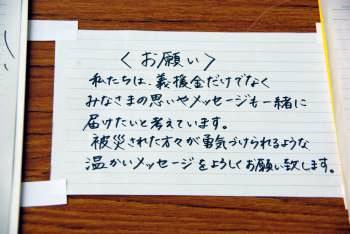 ＜お願い＞
私たちは、義援金だけでなく
みなさまの思いやメッセージも一緒に
届けたいと考えています。
被災された方々が勇気づけられるような
温かいメッセージをよろしくお願い致します。